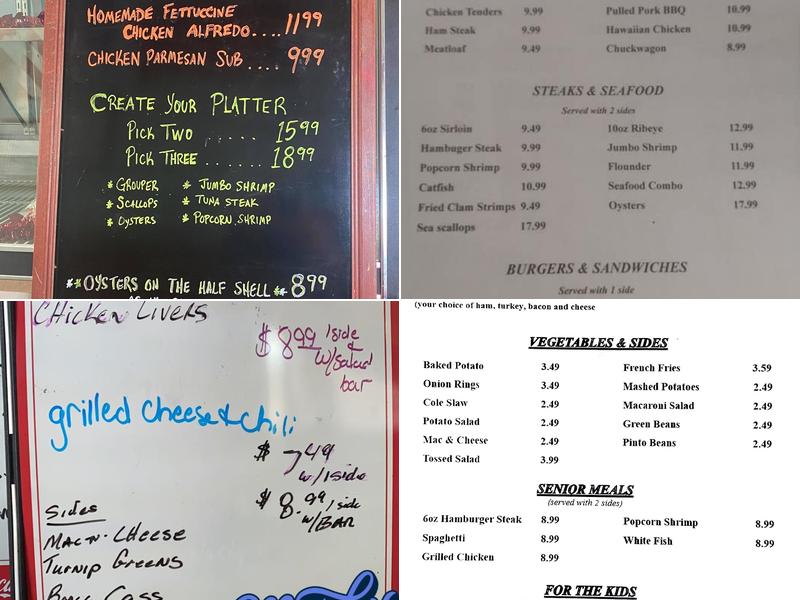 HOMEMADE FETTUCCINE
CHICKEN ALFREDO.... 11.99
CHICKEN PARMESAN SUB .... 9.99
CREATE YOUR PLATTER
PICK TWO ...... 15.99
PICK THREE ...... 18.99
* GROUPER * JUMBO SHRIMP
* SCALLOPS * TUNA STEAK
* OYSTERS * POPCORN SHRIMP
** OYSTERS ON THE HALF SHELL ** 8.99
Chicken Tenders 9.99 Pulled Pork BBQ 10.99
Ham Steak 9.99 Hawaiian Chicken 10.99
Meatloaf 9.49 Chuckwagon 8.99
STEAKS & SEAFOOD
Served with 2 sides
6oz Sirloin 9.49 10oz Ribeye 12.99
Hambuger Steak 9.99 Jumbo Shrimp 11.99
Popcorn Shrimp 9.99 Flounder 11.99
Catfish 10.99 Seafood Combo 12.99
Fried Clam Strimps 9.49 Oysters 17.99
Sea scallops 17.99
BURGERS & SANDWICHES
Served with 1 side
CHICKEN LIVERS
$ 8.99 1 side
&
w/salad
bar
grilled cheese & chili
$ 7.49
w/ 1 side
$ 8.99 1 side
w/BAR
Sides
MAC-N-CHEESE
TURNIP GREENS
(your choice of ham, turkey, bacon and cheese
VEGETABLES & SIDES
Baked Potato 3.49 French Fries 3.59
Onion Rings 3.49 Mashed Potatoes 2.49
Cole Slaw 2.49 Macaroni Salad 2.49
Potato Salad 2.49 Green Beans 2.49
Mac & Cheese 2.49 Pinto Beans 2.49
Tossed Salad 3.99
SENIOR MEALS
(served with 2 sides)
6oz Hamburger Steak 8.99 Popcorn Shrimp 8.99
Spaghetti 8.99 White Fish 8.99
Grilled Chicken 8.99
FOR THE KIDS